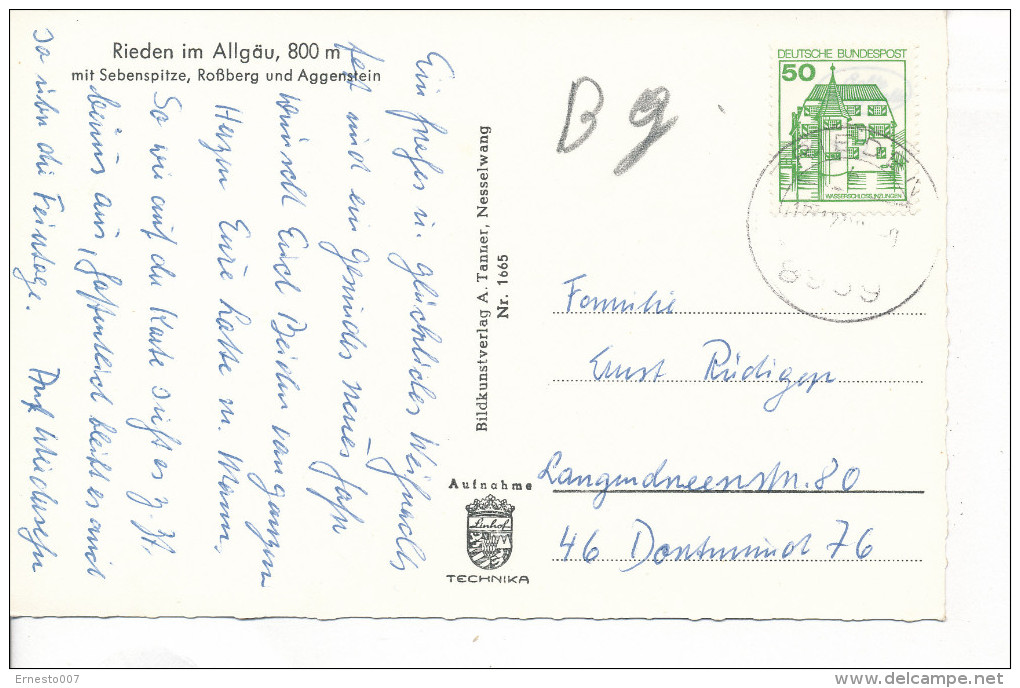 Rieden im Allgäu, 800 m
mit Sebenspitze, Roßberg und Aggenstein
Ein frohes u. glückliches Weihnachts
fest und ein gesundes neues Jahr
wünscht Euch Beiden von ganzem
Herzen Eure Lotte u. Mann.
So wie auf der Karte sieht es z. Zt.
bei uns aus, hoffentlich bleibt es auch
so über die Feiertage.
Auf Wiedersehn
Bildkunstverlag A. Tanner, Nesselwang
Nr. 1665
Aufnahme
Linhof
TECHNIKA
B g
DEUTSCHE BUNDESPOST
50
WASSERSCHLOSS INZLINGEN
8959
Familie
Ernst Rüdiger
Langendreerstr. 80
46 Dortmund 76
Ernesto007
delcampe.net